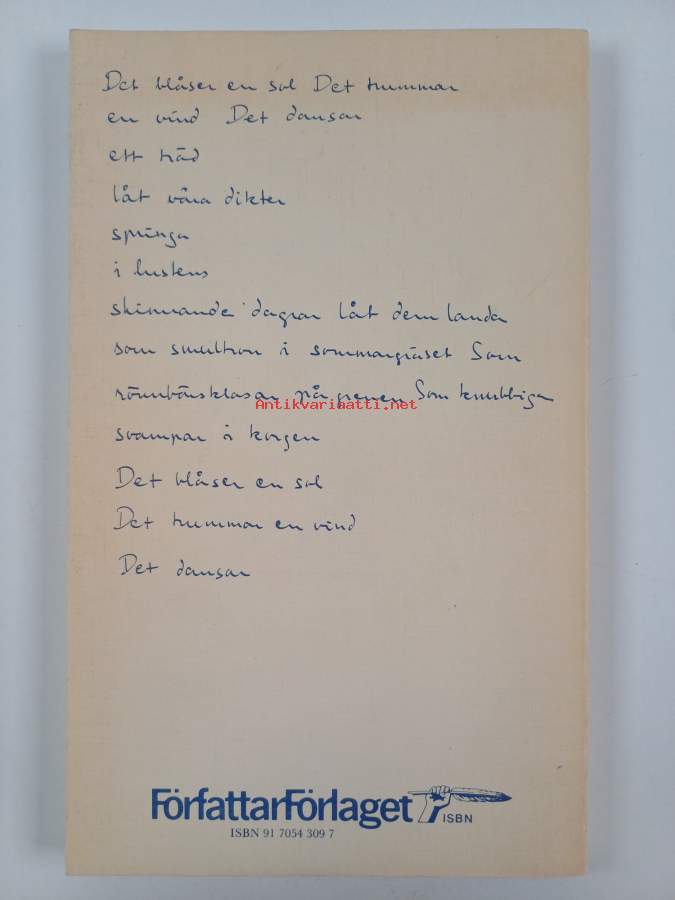 Det blåser en sol Det trummar
en vind Det dansar
ett träd
låt våra dikter
springa
i lustens
skinnande dagrar låt dem landa
som smultron i sommargräset Som
rönnbärsklasar på grenen Som knubbiga
Antikvariaatti.net
svampar i korgen
Det blåser en sol
Det trummar en vind
Det dansar
FörfattarFörlaget
ISBN
ISBN 91 7054 309 7